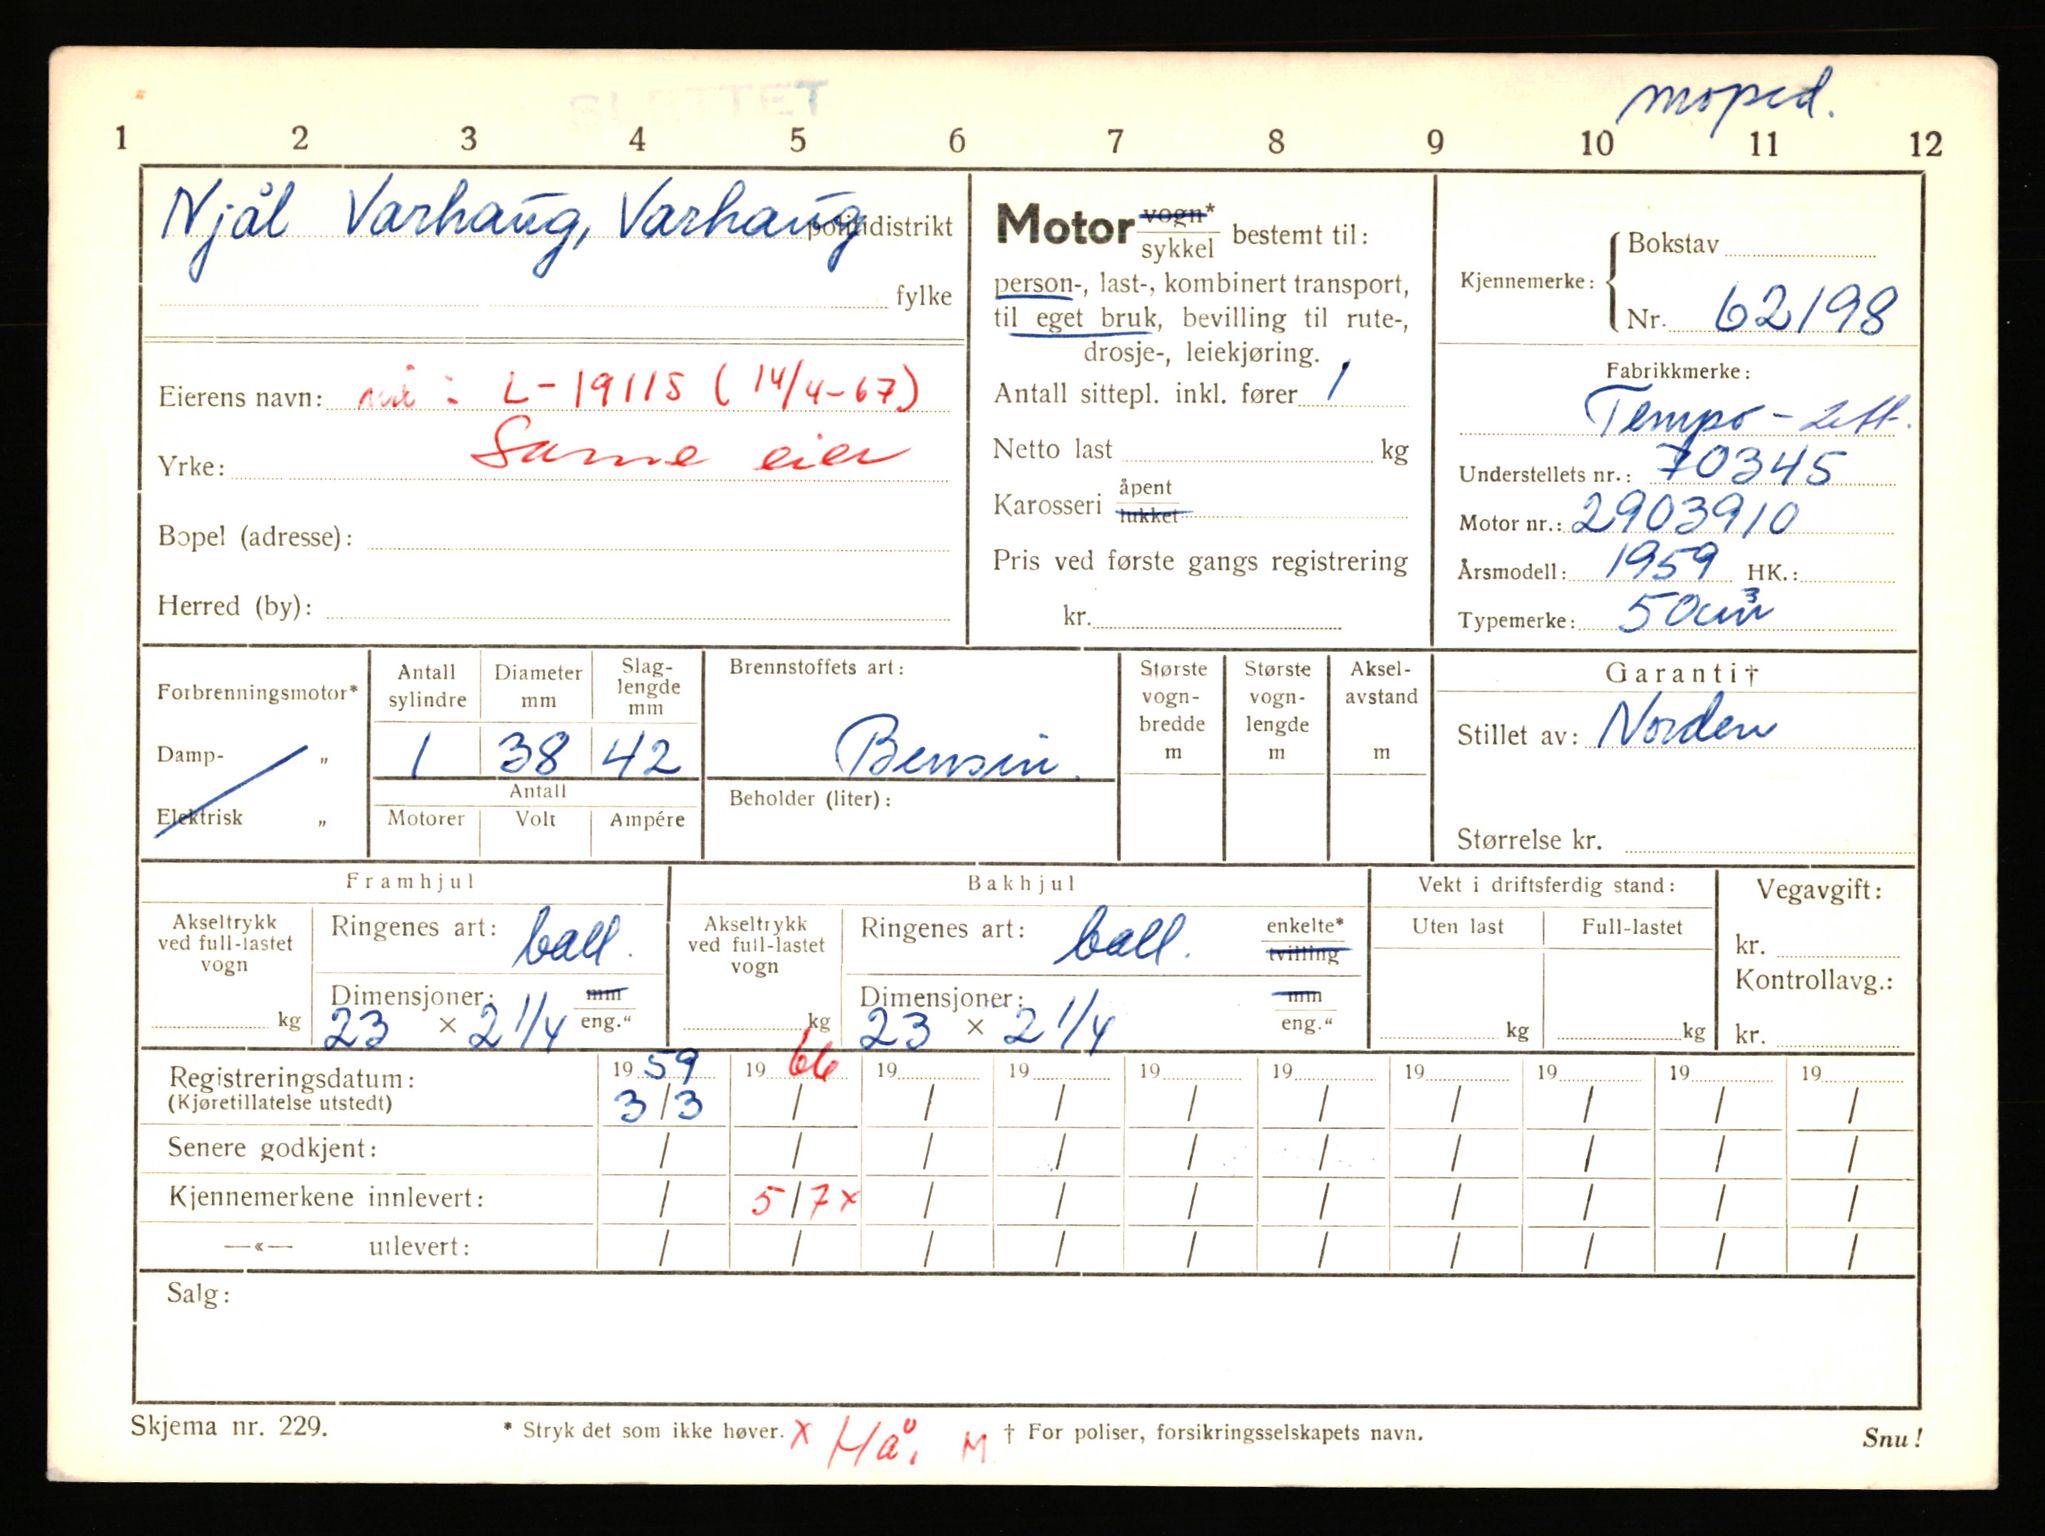 SLETTET
moped.
1 2 3 4 5 6 7 8 9 10 11 12
Njål Varhaug, Varhaug politidistrikt
fylke
Eierens navn: nå : L-19115 (14/4-67)
Yrke: Samme eier
Bopel (adresse):
Herred (by):
Motor vogn* sykkel bestemt til:
person-, last-, kombinert transport,
til eget bruk, bevilling til rute-,
drosje-, leiekjøring.
Antall sittepl. inkl. fører 1
Netto last kg
Karosseri åpent lukket
Pris ved første gangs registrering
kr.
Kjennemerke: Bokstav
Nr. 62198
Fabrikkmerke:
Tempo - Lett.
Understellets nr.: 70345
Motor nr.: 2903910
Årsmodell: 1959 HK.:
Typemerke: 50cm³
Forbrenningsmotor*
Damp- „
Elektrisk „
Antall sylindre
Diameter mm
Slag-lengde mm
1 38 42
Antall
Motorer Volt Ampére
Brennstoffets art:
Bensin.
Beholder (liter):
Største vogn-bredde m
Største vogn-lengde m
Aksel-avstand m
Garanti†
Stillet av: Norden
Størrelse kr.
Framhjul
Akseltrykk ved full-lastet vogn
kg
Ringenes art: ball.
Dimensjoner: mm
23 × 2 1/4 eng."
Bakhjul
Akseltrykk ved full-lastet vogn
kg
Ringenes art: ball. enkelte* tvilling
Dimensjoner: mm
23 × 2 1/4 eng."
Vekt i driftsferdig stand:
Uten last Full-lastet
kg kg
Vegavgift:
kr.
Kontrollavg.:
kr.
Registreringsdatum: 19 59 19 66 19 19 19 19 19 19 19 19
(Kjøretillatelse utstedt) 3/3 / / / / / / / / /
Senere godkjent: / / / / / / / / / /
Kjennemerkene innlevert: / 5/7 x / / / / / / / /
—«— utlevert: / / / / / / / / / /
Salg:
Skjema nr. 229. * Stryk det som ikke høver. x Hå. M † For poliser, forsikringsselskapets navn. Snu!